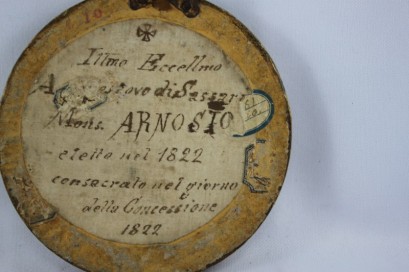 10.
✠
Illmo Eccellmo
A vescovo di Sassari
Mons. ARNOSIO
eletto nel 1822
consacrato nel giorno
della Concessione
1822